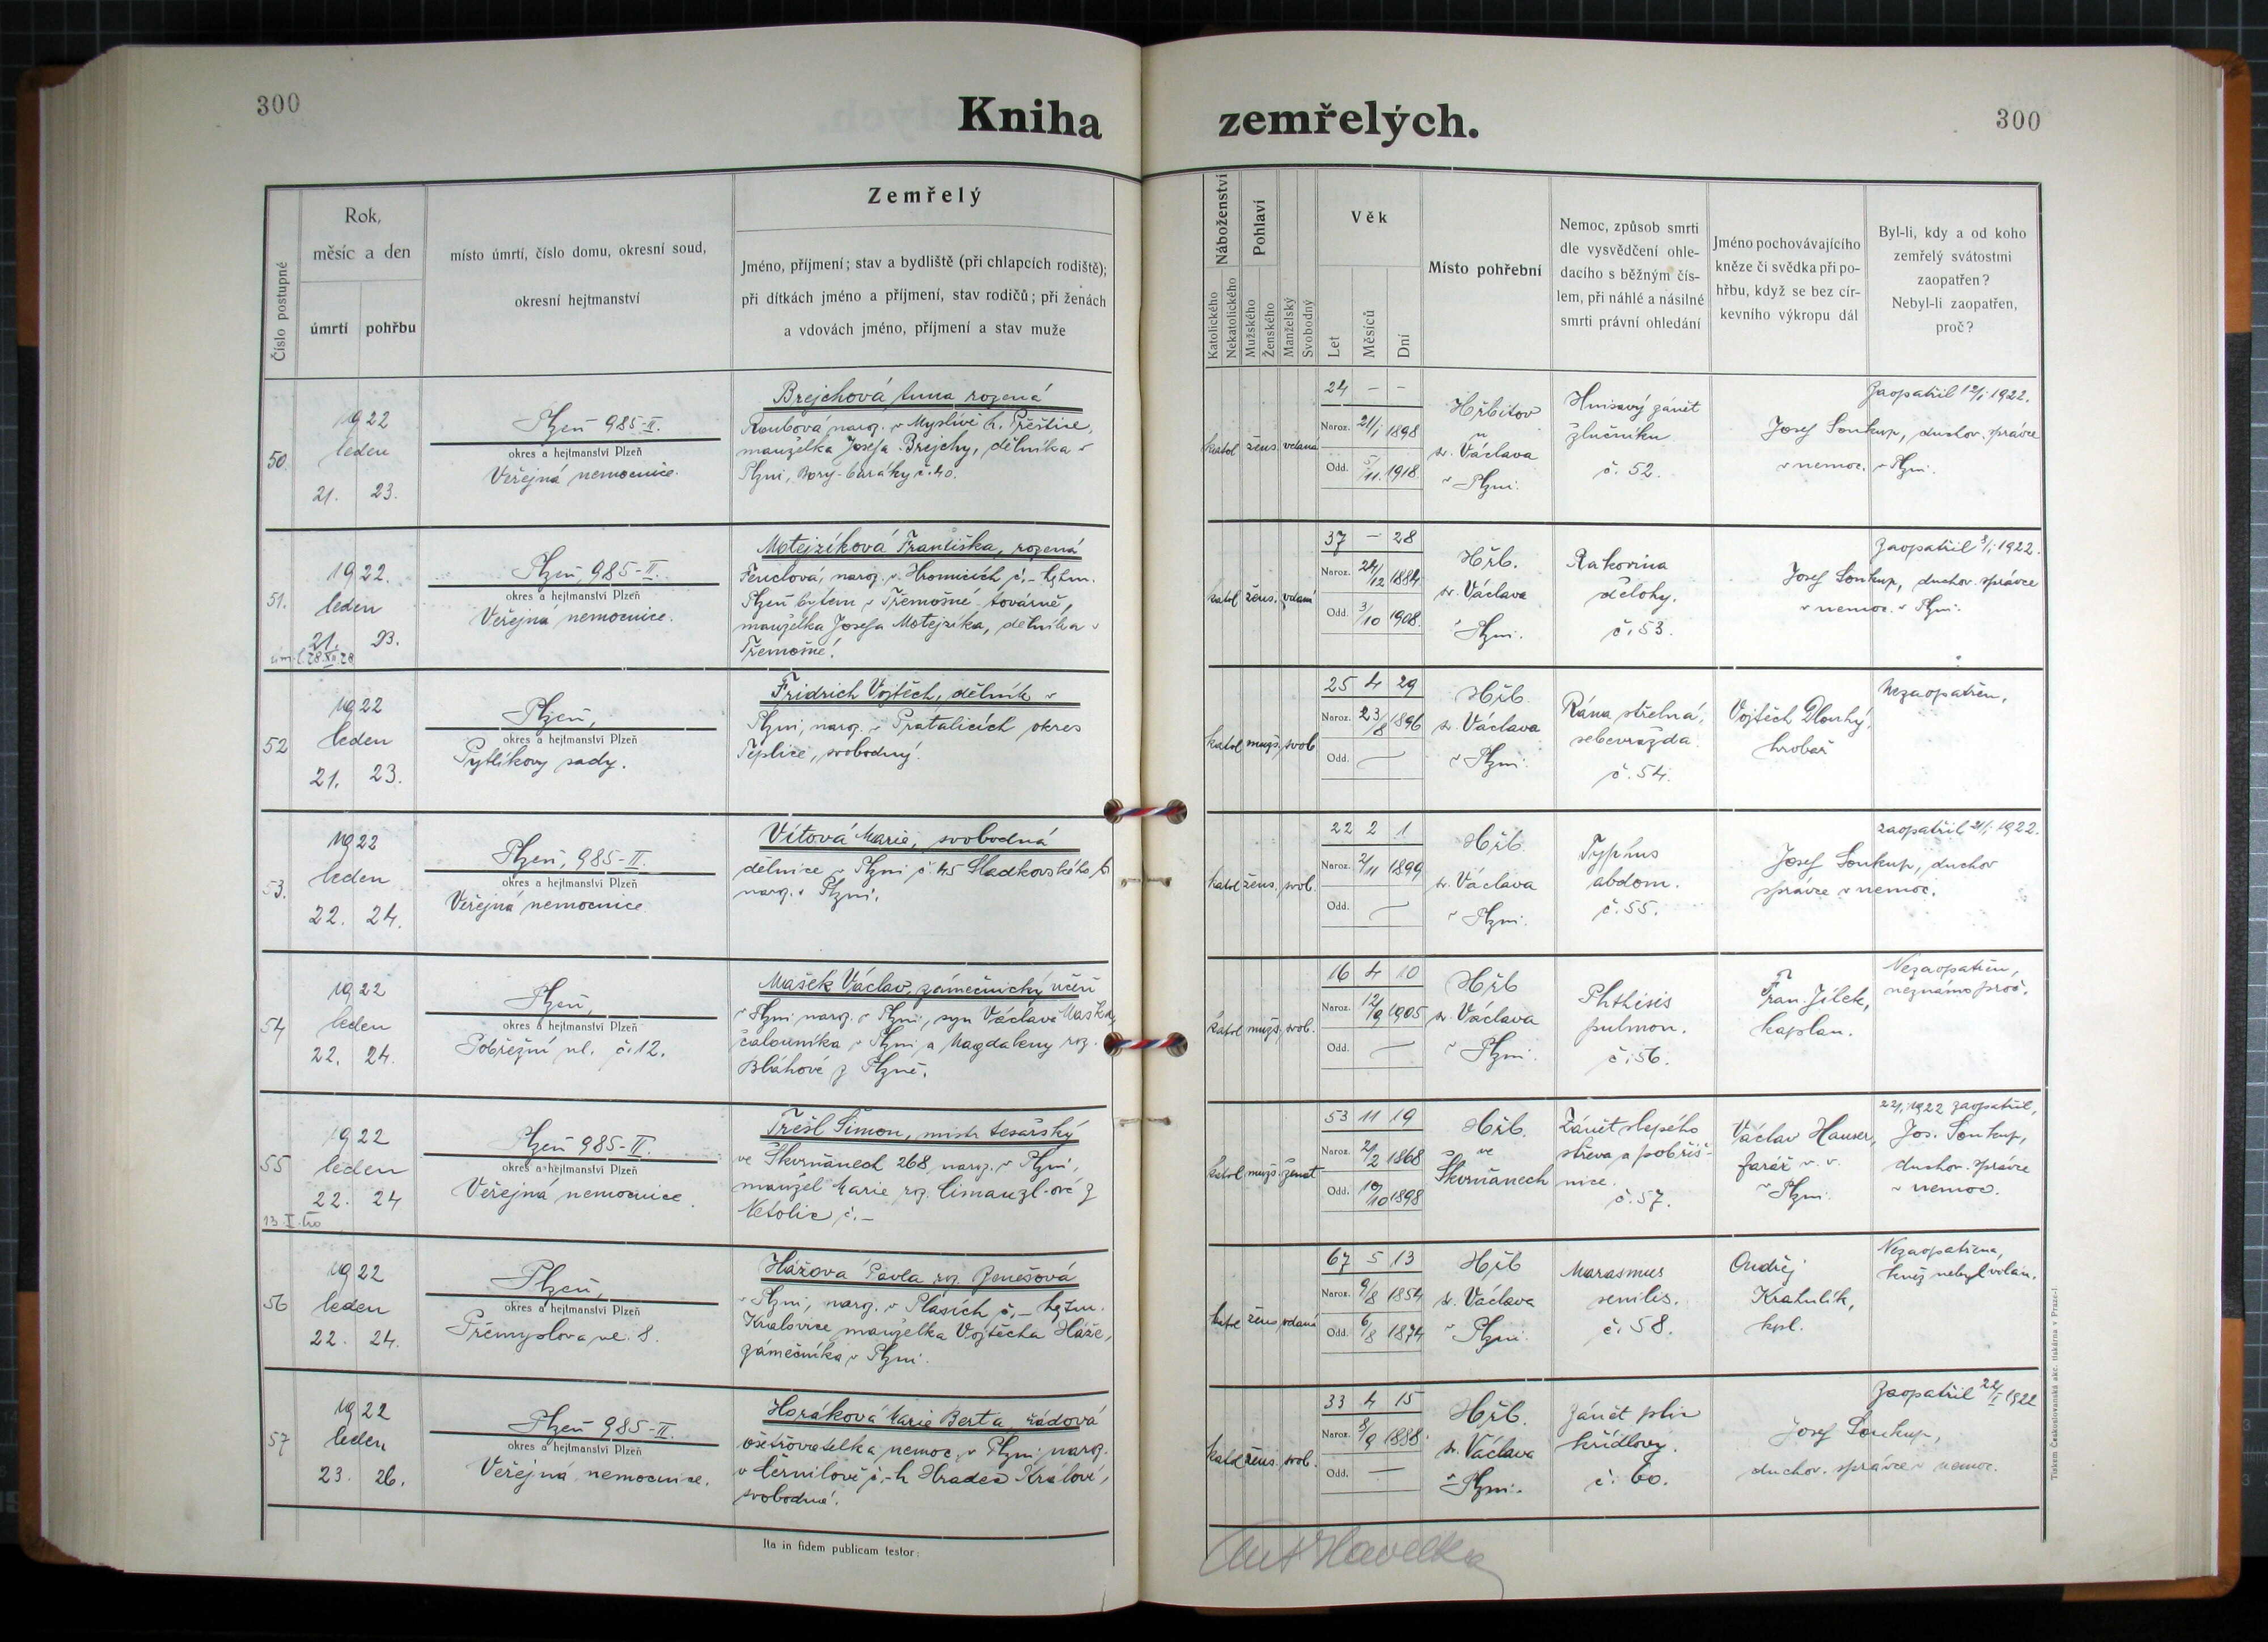 300
Kniha
zemřelých.
300
Číslo postupné
Rok,
měsíc a den
úmrtí
pohřbu
místo úmrtí, číslo domu, okresní soud,
okresní hejtmanství
Zemřelý
Jméno, příjmení; stav a bydliště (při chlapcích rodiště);
při dítkách jméno a příjmení, stav rodičů; při ženách
a vdovách jméno, příjmení a stav muže
Náboženství
Katolického
Nekatolického
Pohlaví
Mužského
Ženského
Manželský
Svobodný
Věk
Let
Měsíců
Dní
Místo pohřební
Nemoc, způsob smrti
dle vysvědčení ohle-
dacího s běžným čís-
lem, při náhlé a násilné
smrti právní ohledání
Jméno pochovávajícího
kněze či svědka při po-
hřbu, když se bez cír-
kevního výkropu dál
Byl-li, kdy a od koho
zemřelý svátostmi
zaopatřen?
Nebyl-li zaopatřen,
proč?
50.
1922
leden
21. 23.
Plzeň 985-II.
okres a hejtmanství Plzeň
Veřejná nemocnice.
Brejchová Anna rozená
Roubová naroz. v Myslívě h. Přeštice,
manželka Josefa Brejchy, dělníka v
Plzni, Bory-baráky č. 40.
katol žens. vdaná
24 - -
Naroz. 21/1 1898
Odd. 5/11. 1918.
Hřbitov
u
sv. Václava
v Plzni.
Hnisavý zánět
žlučníku
č. 52.
Zaopatřil 12/1 1922.
Josef Soukup, duchov. správce
v nemoc. v Plzni.
51.
1922.
leden
21. 23.
Plzeň, 985-II.
okres a hejtmanství Plzeň
Veřejná nemocnice.
Motejzíková Františka, rozená
Fenclová, naroz. v Hromicích č.- hejtm.
Plzeň bytem v Třemošné továrně,
manželka Josefa Motejzíka, dělníka v
Třemošné.
katol žens. vdaná
37 - 28
Naroz. 24/12 1884
Odd. 3/10 1908.
Hřb.
sv. Václava
v Plzni.
Rakovina
dělohy.
č. 53.
Zaopatřil 8/1 1922.
Josef Soukup, duchov. správce
v nemoc. v Plzni.
52
1922
leden
21. 23.
Plzeň,
okres a hejtmanství Plzeň
Pytlíkovy sady.
Fridrich Vojtěch, dělník v
Plzni, naroz. v Pratalicích okres
Teplice, svobodný.
katol mužs. svob
25 4 29
Naroz. 23/8 1896
Odd. —
Hřb.
sv. Václava
v Plzni.
Rána střelná,
sebevražda.
č. 54.
Vojtěch Dlouhý,
hrobař
Nezaopatřen.
53.
1922
leden
22. 24.
Plzeň, 985-II.
okres a hejtmanství Plzeň
Veřejná nemocnice.
Vítová Marie, svobodná
dělnice v Plzni č. 45 Sladkovského
naroz. v Plzni.
katol žens. svob.
22 2 1
Naroz. 21/11 1899
Odd. —
Hřb.
sv. Václava
v Plzni.
Typhus
abdom.
č. 55.
zaopatřil 21/1 1922.
Josef Soukup, duchov
správce v nemoc.
54
1922
leden
22. 24.
Plzeň,
okres a hejtmanství Plzeň
Pobřežní ul. č. 12.
Mašek Václav, zámečnický učeň
v Plzni naroz. v Plzni, syn Václava Maška,
čalouníka v Plzni a Magdaleny roz.
Bláhové z Plzně.
katol mužs. svob.
16 4 10
Naroz. 12/9 1905
Odd. —
Hřb
sv. Václava
v Plzni.
Phthisis
pulmon.
č. 56.
Fran. Jílek,
kaplan.
Nezaopatřen,
neznámo proč.
55
1922
leden
22. 24
Plzeň 985-II.
okres a hejtmanství Plzeň
Veřejná nemocnice.
Trešl Šimon, mistr tesařský
ve Skvrňanech 268 naroz. v Plzni,
manžel Marie roz. Cimanzl-ové z
Netolic č.-
katol mužs. ženat
53 11 19
Naroz. 2/2 1868
Odd. 10/10 1898
Hřb.
ve
Skvrňanech
Zánět slepého
střeva a pobřiš-
nice.
č. 57.
Václav Hauser,
farář v. v.
v Plzni.
22/1 1922 zaopatřil,
Jos. Soukup,
duchov. správce
v nemoc.
56
1922
leden
22. 24.
Plzeň,
okres a hejtmanství Plzeň
Přemyslova ul. 8.
Hážová Pavla roz. Benešová
v Plzni, naroz. v Plasích č.- hejtm.
Kralovice manželka Vojtěcha Háže,
zámečníka v Plzni.
katol žens. vdaná
67 5 13
Naroz. 9/8 1854
Odd. 6/8 1874
Hřb
sv. Václava
v Plzni.
Marasmus
senilis.
č. 58.
Ondřej
Krahulík,
kpl.
Nezaopatřena,
kněz nebyl volán.
57
1922
leden
23. 26.
Plzeň 985-II.
okres a hejtmanství Plzeň
Veřejná nemocnice.
Horáková Marie Berta, řádová
ošetřovatelka nemoc. v Plzni, naroz.
v Černilově č.- h Hradec Králové,
svobodná.
katol žens. svob.
33 4 15
Naroz. 8/9 1888.
Odd. —
Hřb.
sv. Václava
v Plzni.
Zánět plic
křídlový.
č. 60.
Zaopatřil 22/I 1922
Josef Soukup,
duchov. správce v nemoc.
Ita in fidem publicam testor:
Ant Havelka
Tiskem Českoslovanská akc. tiskárna v Praze-I